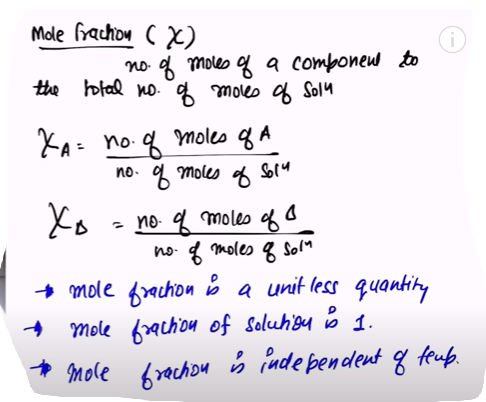 Mole fraction (χ)
no. of moles of a component to
the total no. of moles of Solⁿ
χA = no. of moles of A
no. of moles of Solⁿ
χB = no. of moles of B
no. of moles of Solⁿ
→ mole fraction is a unit less quantity
→ mole fraction of solution is 1.
→ mole fraction is independent of temp.